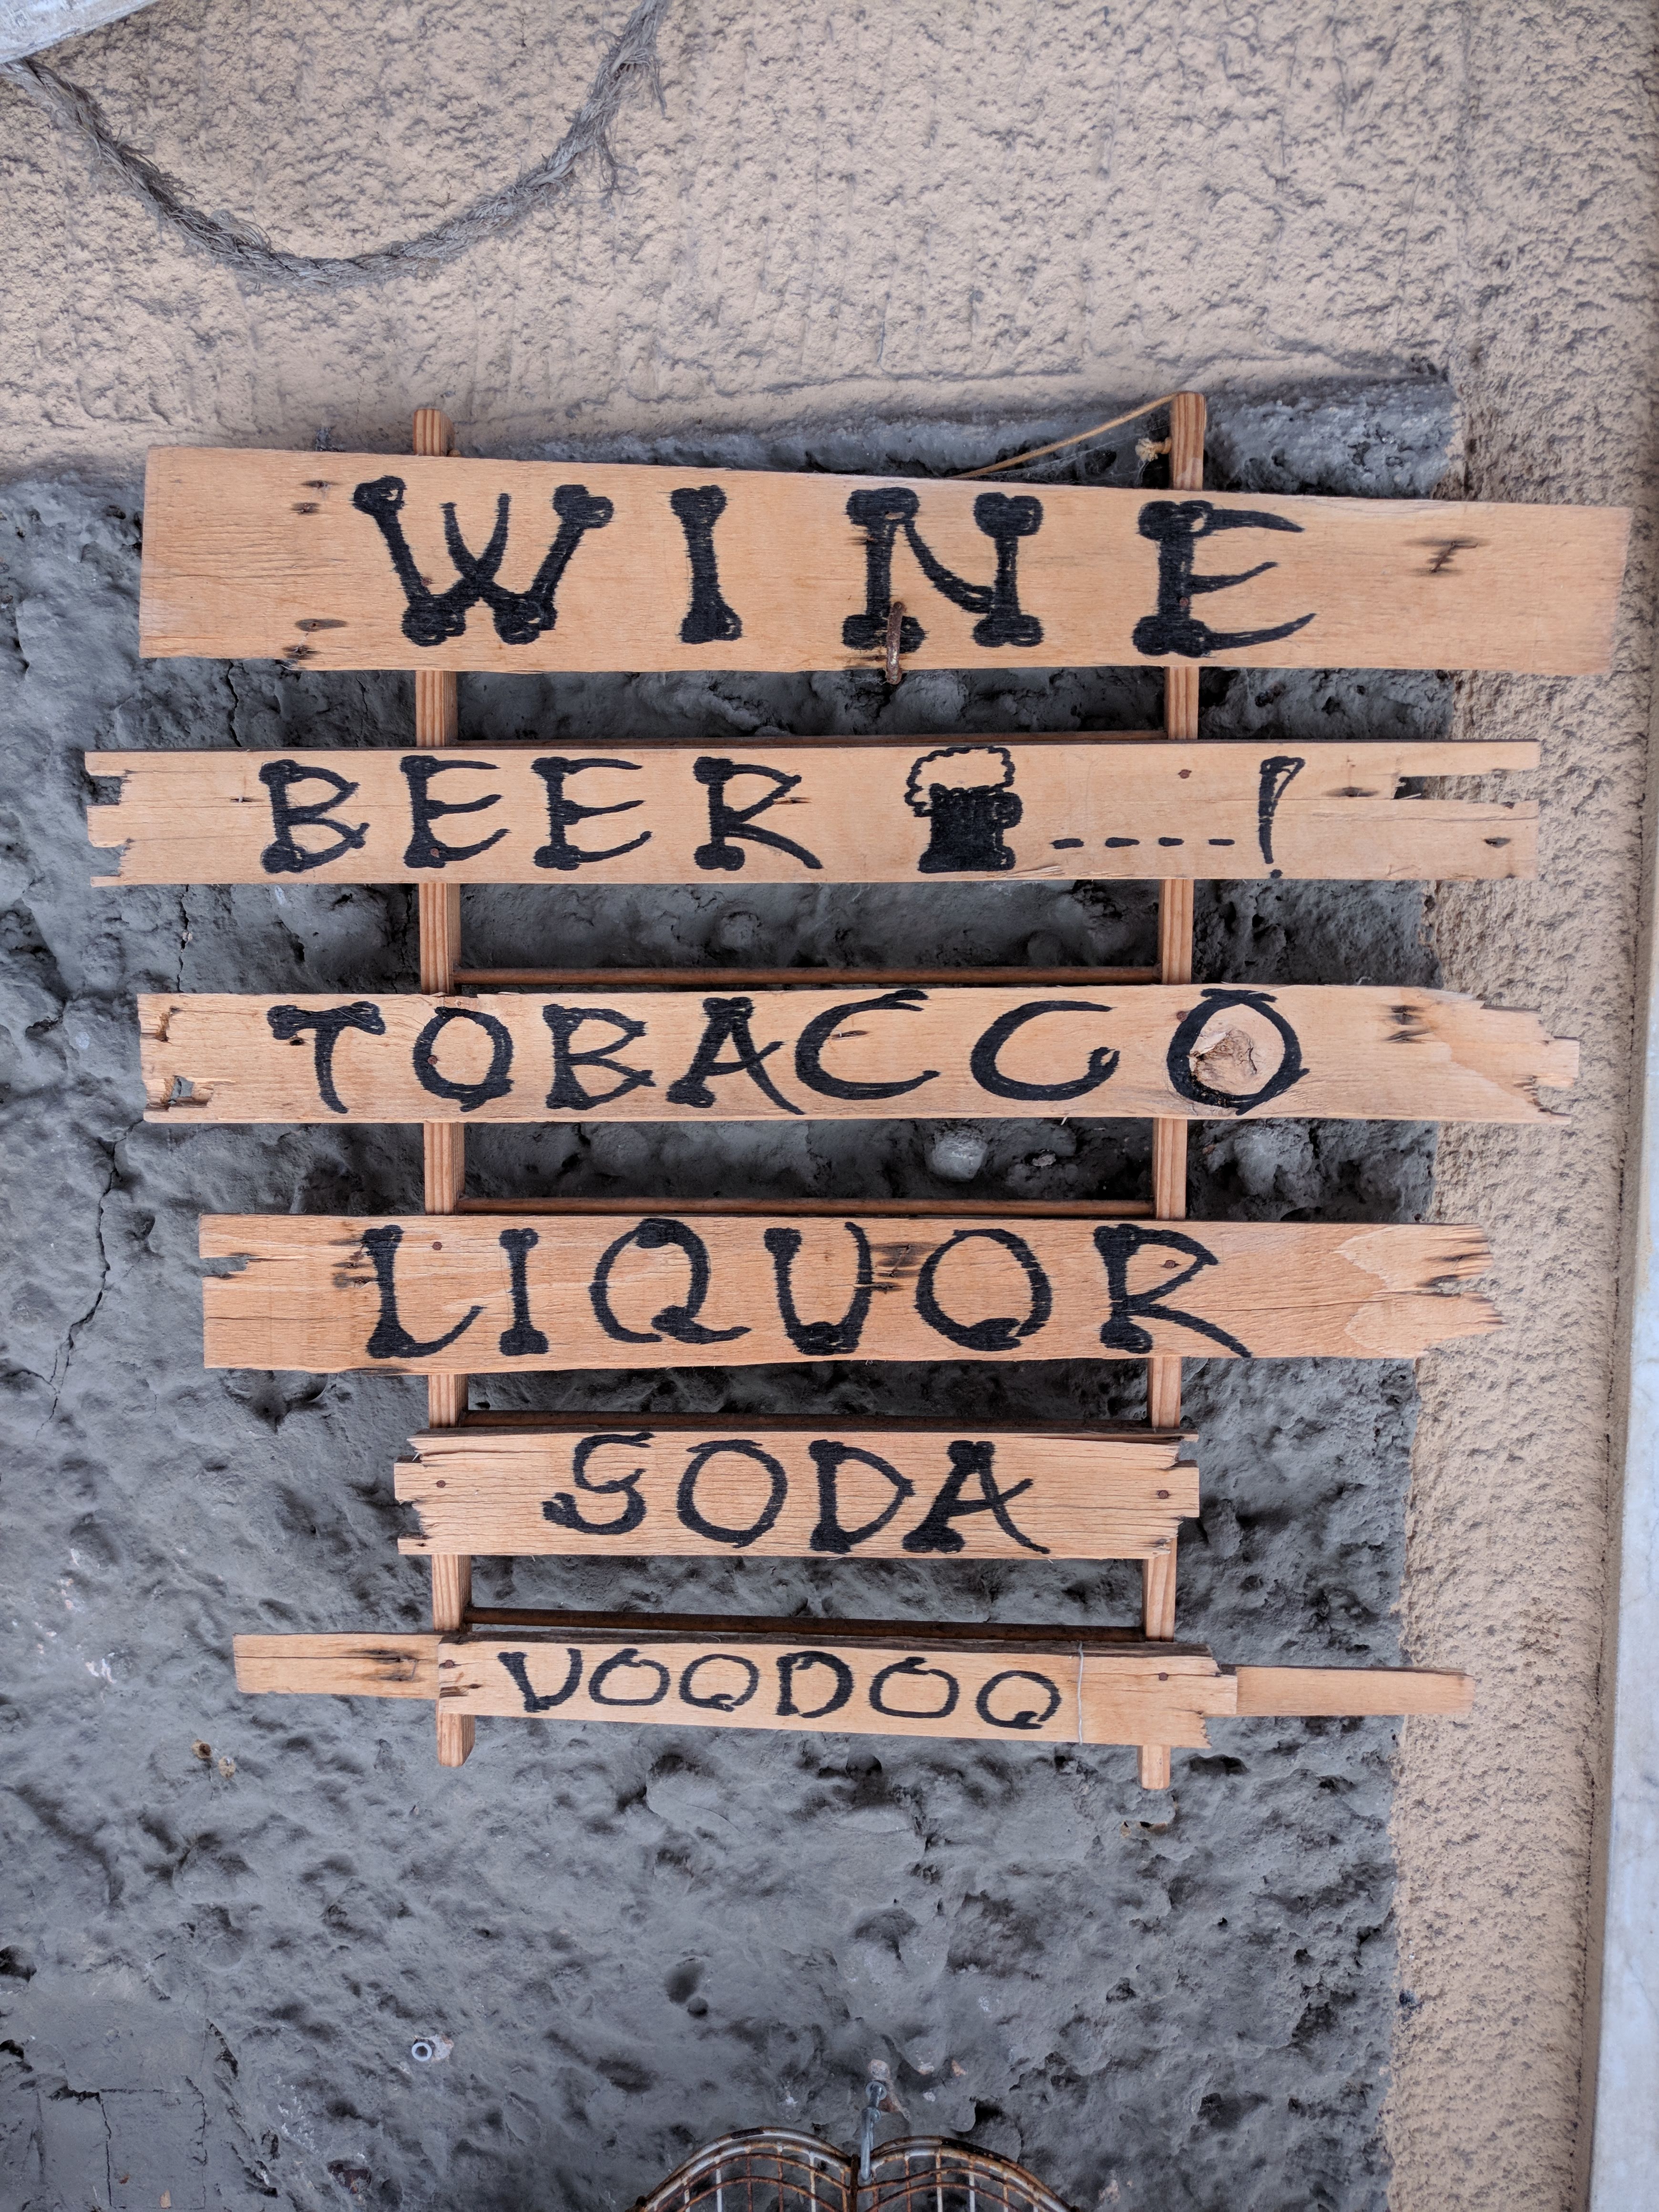 WINE
BEER ----!
TOBACCO
LIQUOR
SODA
VOODOO